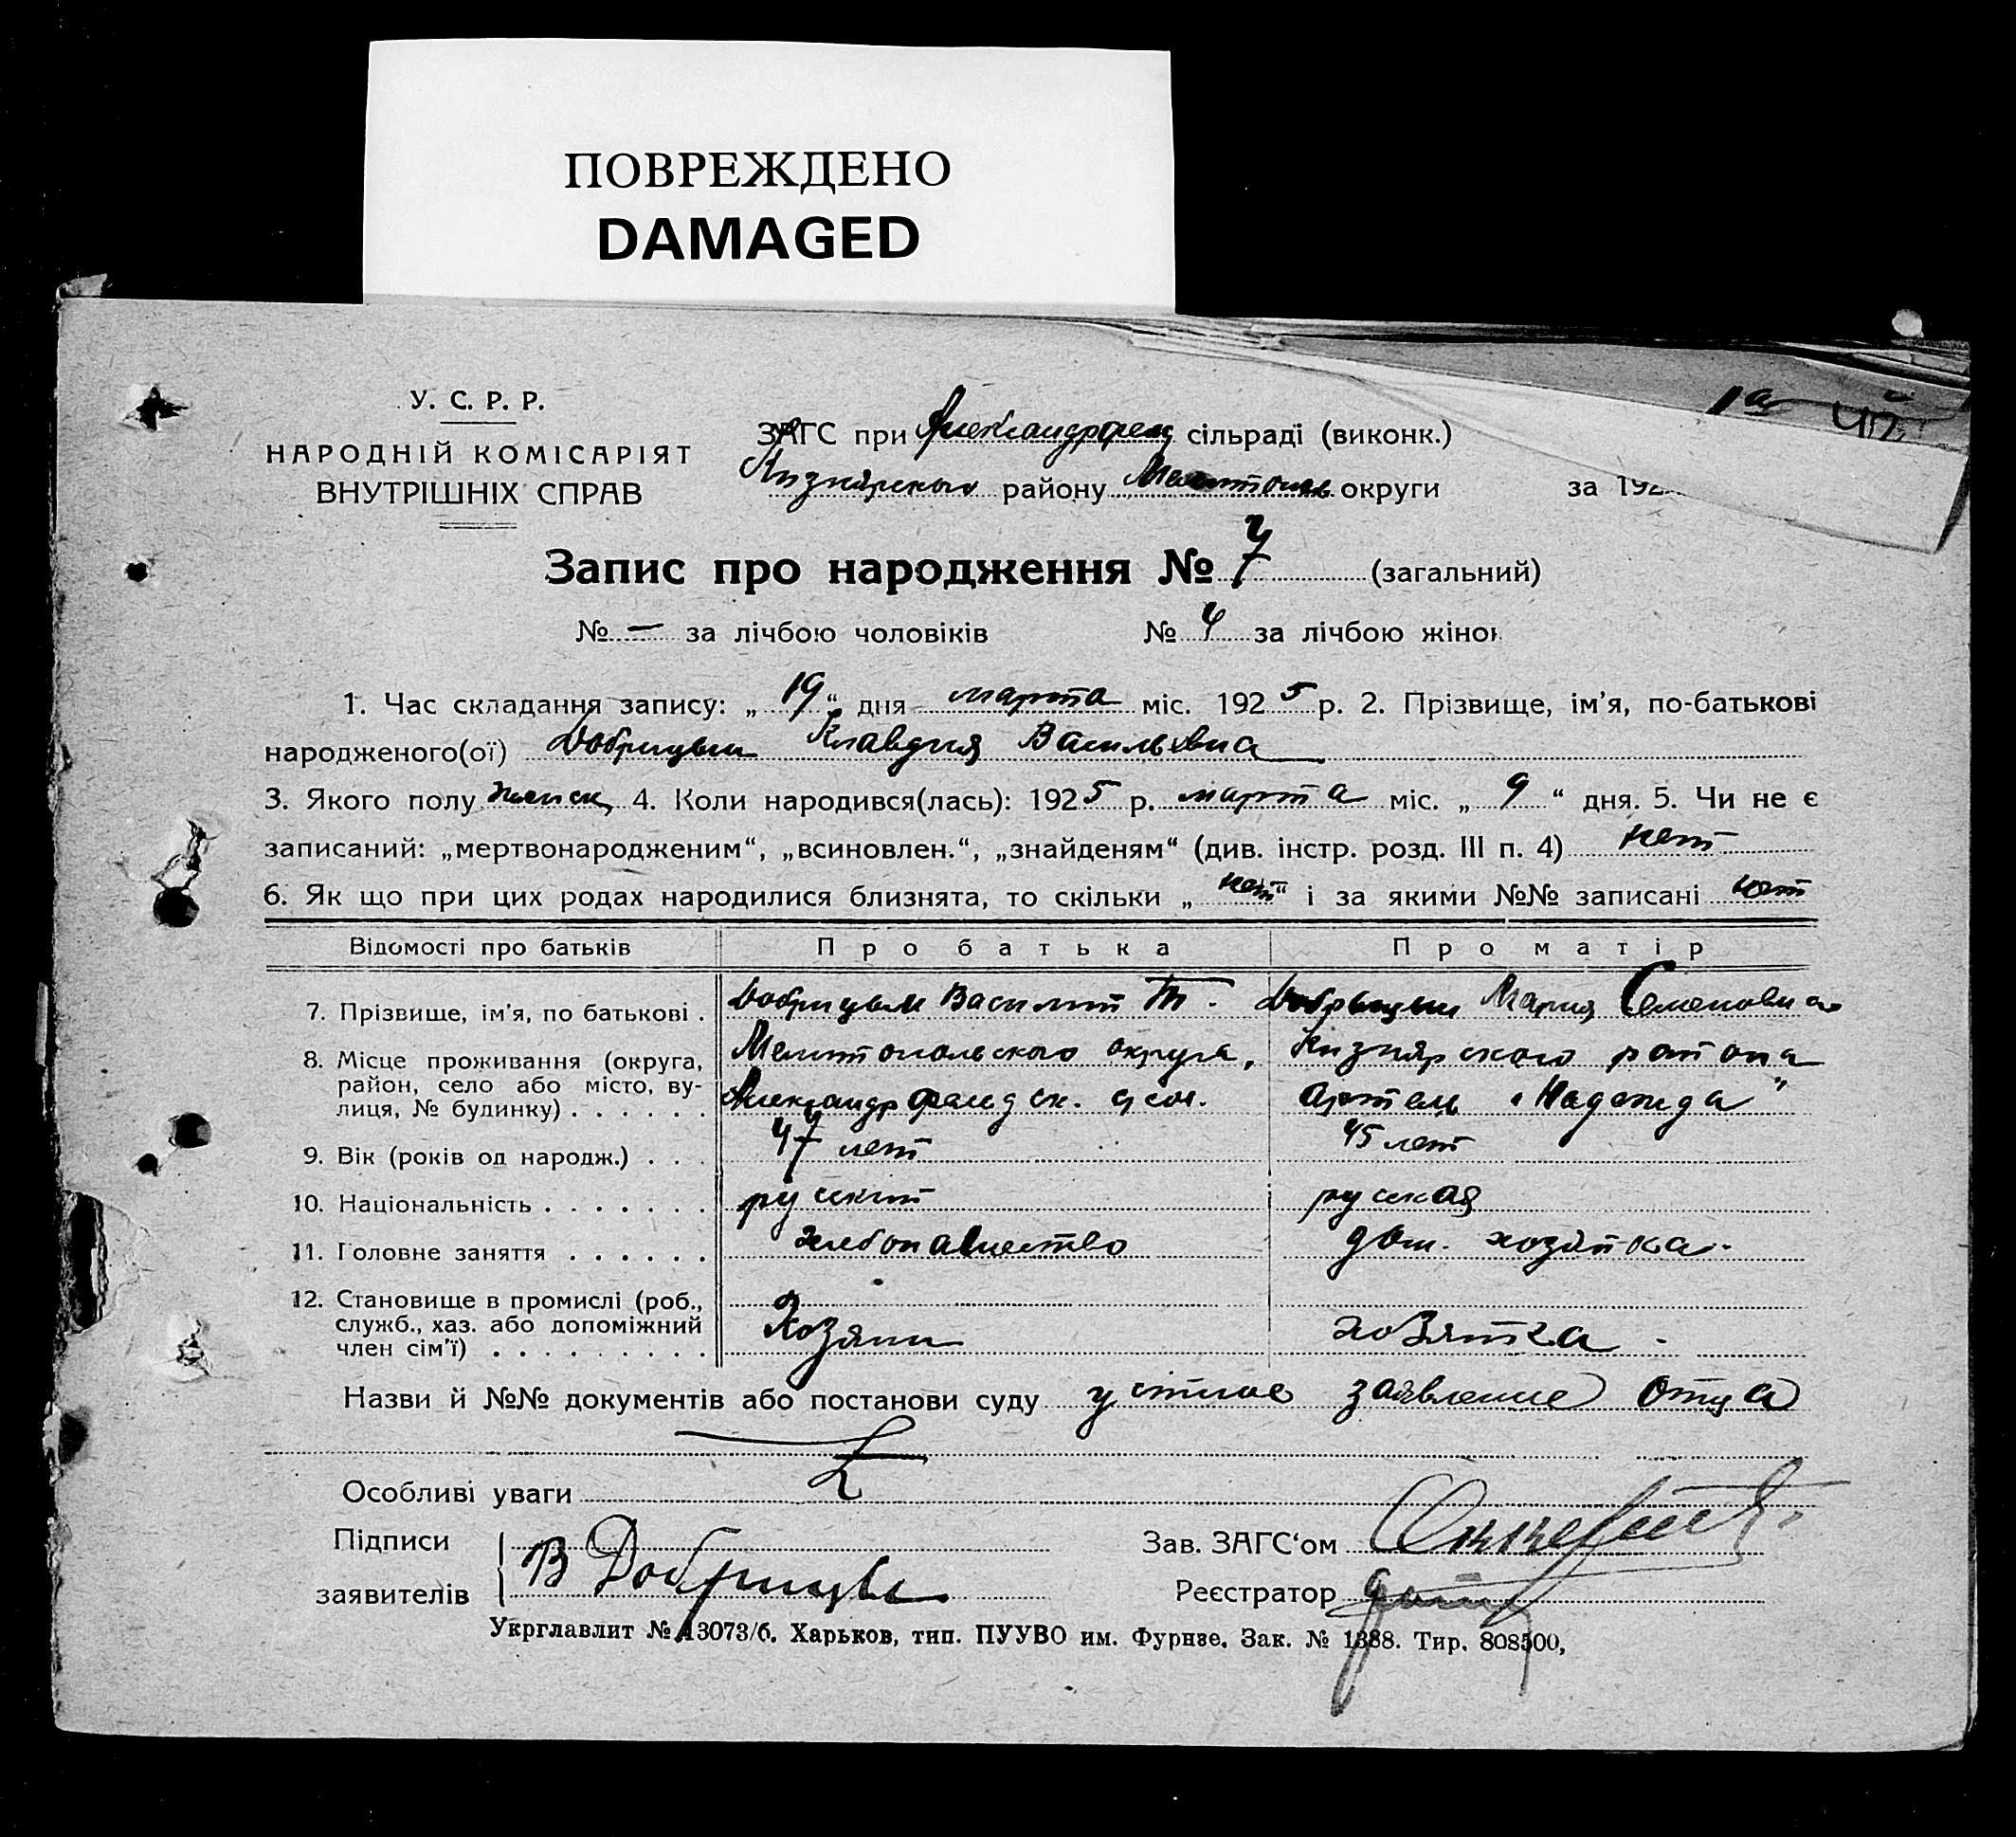 ПОВРЕЖДЕНО
DAMAGED
У. С. Р. Р.
НАРОДНІЙ КОМІСАРІЯТ
ВНУТРІШНІХ СПРАВ
1а
ЗАГС при Александрфельд сільраді (виконк.)
району Мелитопов округи за 192
Запис про народження № 7 (загальний)
№ — за лічбою чоловіків № 4 за лічбою жінок
1. Час складання запису: „ 19 “ дня марта міс. 192 5 р. 2. Прізвище, ім'я, по-батькові
народженого(ої) Добрицын Клавдия Васильевна
3. Якого полу женск. 4. Коли народився(лась): 192 5 р. марта міс. „ 9 “ дня. 5. Чи не є
записаний: „мертвонародженим“, „всиновлен.“, „знайденям“ (див. інстр. розд. III п. 4) нет
6. Як що при цих родах народилися близнята, то скільки „ нет “ і за якими №№ записані нет
Відомості про батьків Про батька Про матір
7. Прізвище, ім'я, по батькові . Добрицын Василий Т. Добрицын Мария Семеновна
8. Місце проживання (округа, Мелитопольского округа, района
район, село або місто, ву-
лиця, № будинку) . . . . . . Александрфельдск. Артель „Надежда”
9. Вік (років од народж.) . . . 47 лет 45 лет
10. Національність . . . . . . . русский русская
11. Головне заняття . . . . . . хлебопашество дом. хозяйка
12. Становище в промислі (роб.,
служб., хаз. або допоміжний Хозяин хозяйка
член сім'ї) . . . . . . . . .
Назви й №№ документів або постанови суду устное заявление отца
Особливі уваги
Підписи Зав. ЗАГС‘ом
В Добрицын
заявителів Реєстратор
Укрглавлит № 13073/б. Харьков, тип. ПУУВО им. Фрунзе. Зак. № 1388. Тир. 808500,